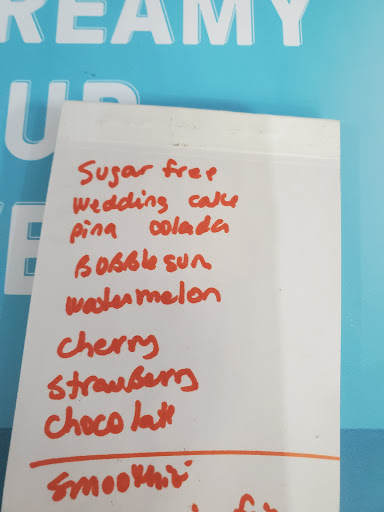 REAMY
UP
Sugar free
wedding cake
pina colada
BOBBlegum
watermelon
cherry
strawBerry
chocolate
smoothie